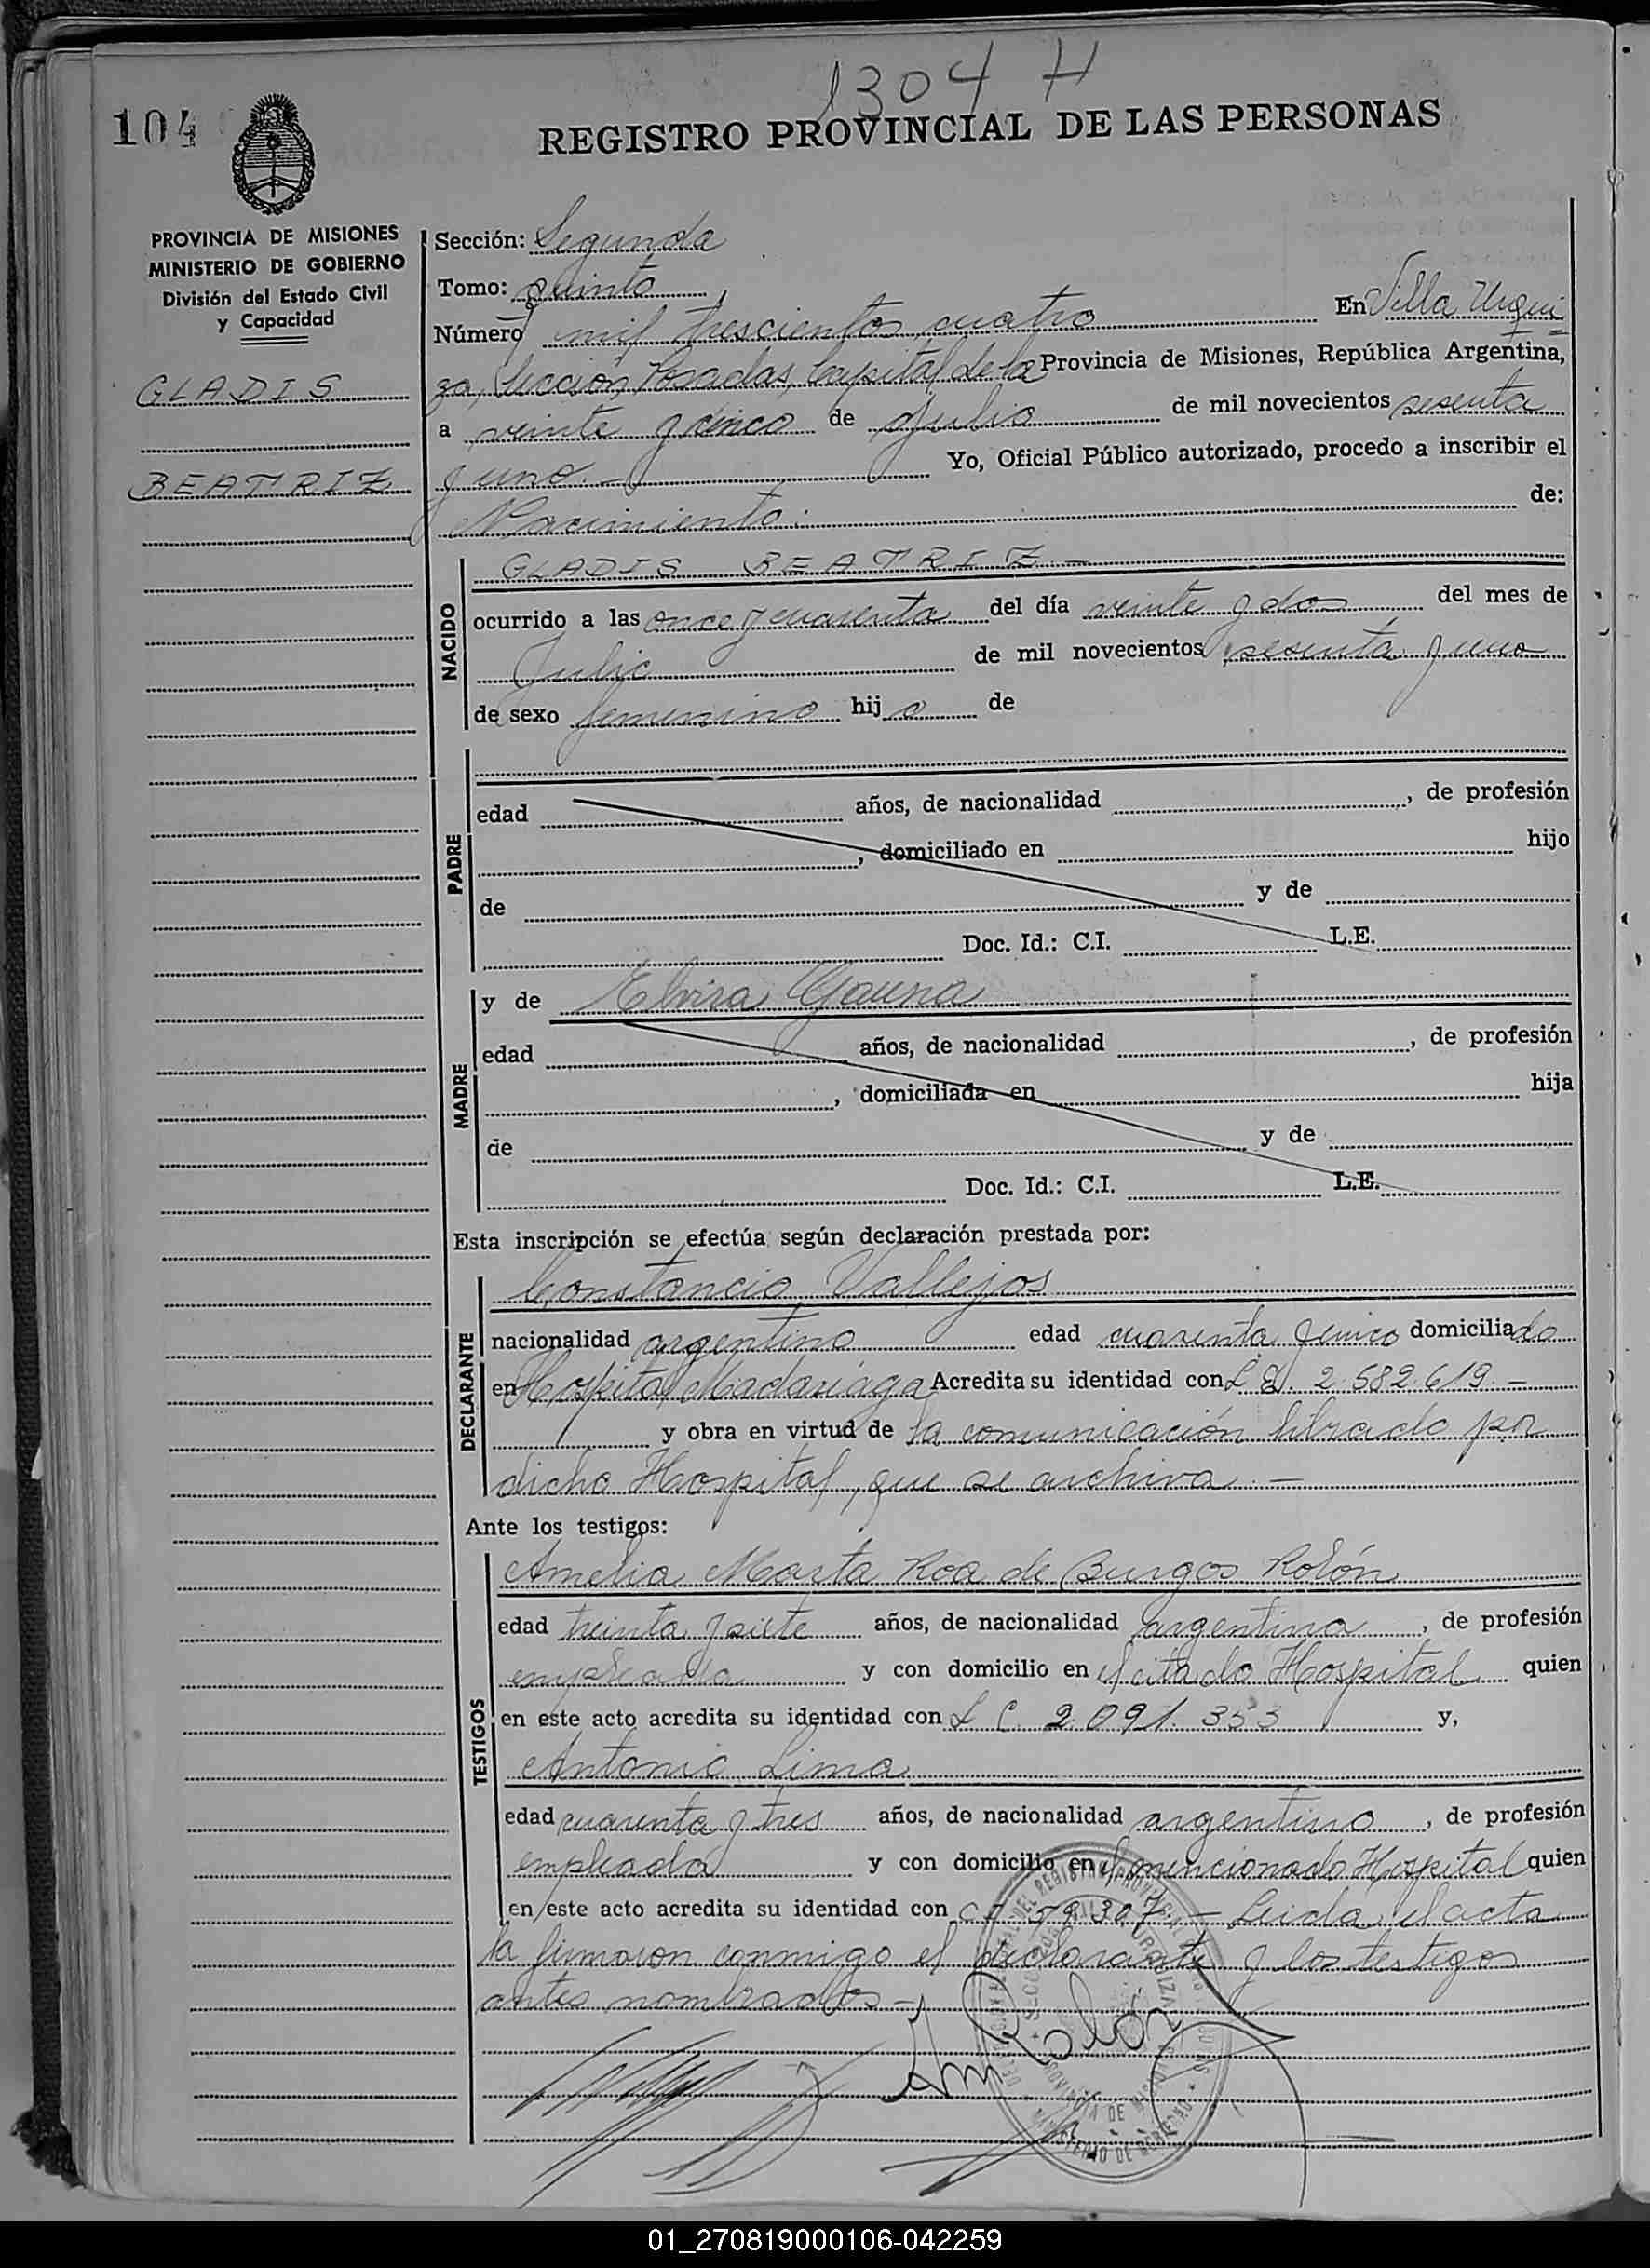 1304 H
104
REGISTRO PROVINCIAL DE LAS PERSONAS
PROVINCIA DE MISIONES
MINISTERIO DE GOBIERNO
División del Estado Civil
y Capacidad
GLADIS
BEATRIZ
Sección: Segunda
Tomo: quinto
Número mil trescientos cuatro En Villa Urqui
za, Sección Posadas, Capital de la Provincia de Misiones, República Argentina,
a veinte y cinco de Julio de mil novecientos sesenta
y uno.- Yo, Oficial Público autorizado, procedo a inscribir el
Nacimiento: de:
NACIDO
GLADIS BEATRIZ.-
ocurrido a las once y cuarenta del día veinte y dos del mes de
Julio de mil novecientos sesenta y uno
de sexo femenino hija de
PADRE
edad años, de nacionalidad , de profesión
, domiciliado en hijo
de y de
Doc. Id.: C.I. L.E.
MADRE
y de Elvira Gauna
edad años, de nacionalidad , de profesión
, domiciliada en hija
de y de
Doc. Id.: C.I. L.E.
Esta inscripción se efectúa según declaración prestada por:
DECLARANTE
Constancio Vallejos
nacionalidad argentino edad cuarenta y cinco domiciliado
en Hospital Madariaga Acredita su identidad con L E. 2.582.619.-
y obra en virtud de la comunicación librada por
dicho Hospital, que se archiva.-
Ante los testigos:
TESTIGOS
Amelia Marta Roa de Burgos Rolón
edad treinta y siete años, de nacionalidad argentina , de profesión
empleada y con domicilio en el citado Hospital quien
en este acto acredita su identidad con L C. 2.091.353 y,
Antonio Lima
edad cuarenta y tres años, de nacionalidad argentino , de profesión
empleado y con domicilio en el mencionado Hospital quien
en este acto acredita su identidad con C I 59.307.- Leida el acta
la firmaron conmigo el declarante y los testigos
antes nombrados.-
Rolón
PROVINCIA DE MISIONES
MINISTERIO DE GOBIERNO
01_270819000106-042259